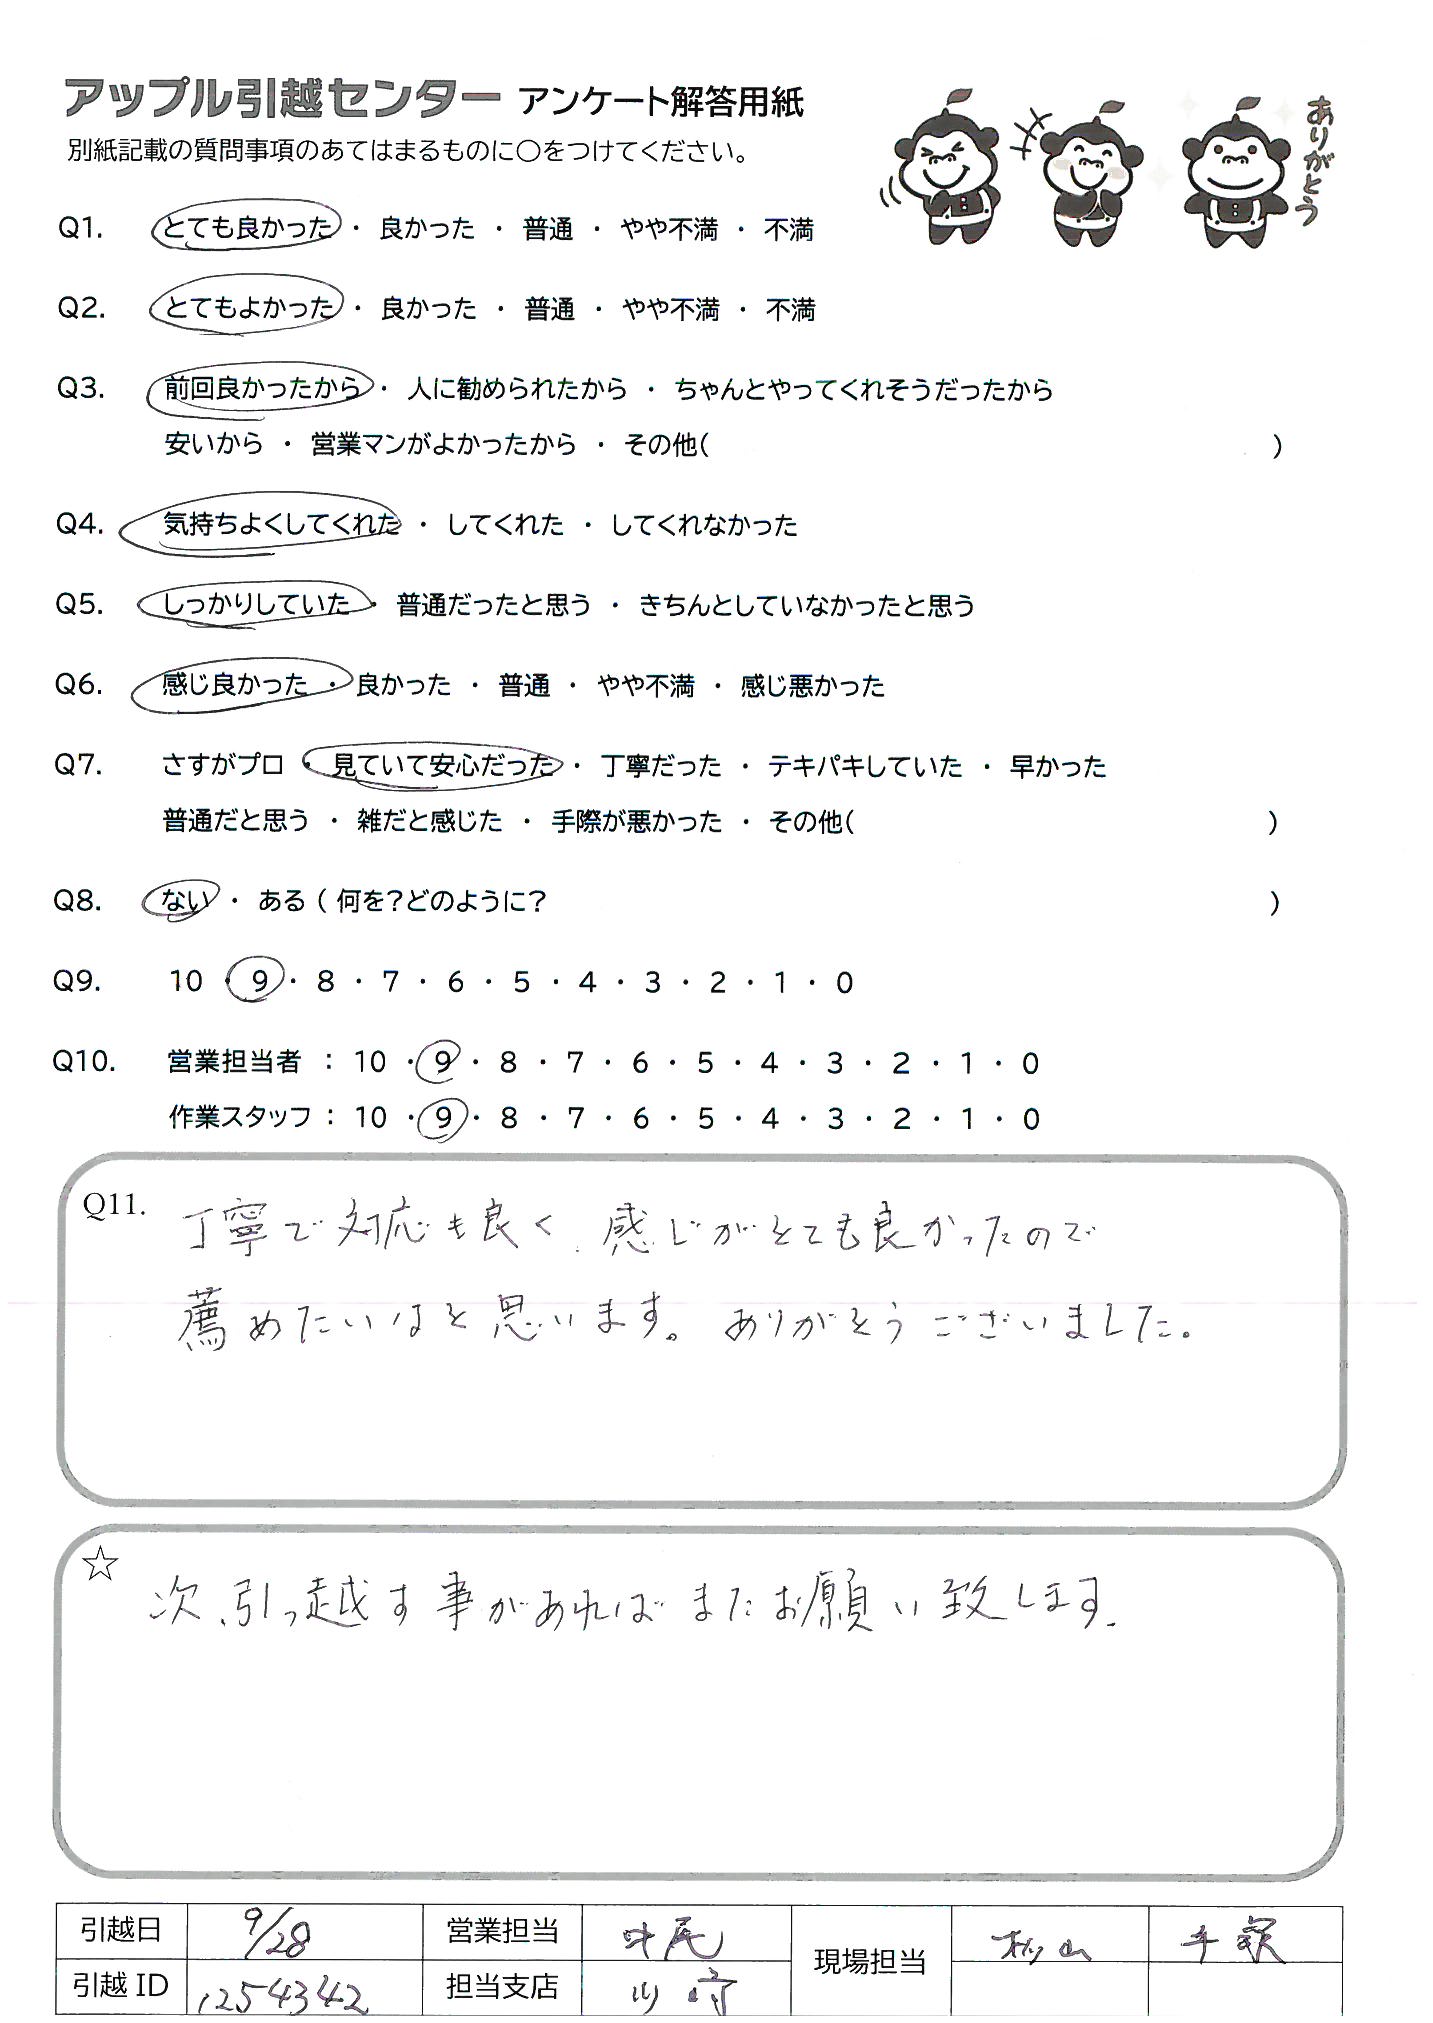 アップル引越センター アンケート解答用紙
別紙記載の質問事項のあてはまるものに〇をつけてください。
ありがとう
Q1. とても良かった ・ 良かった ・ 普通 ・ やや不満 ・ 不満
Q2. とてもよかった ・ 良かった ・ 普通 ・ やや不満 ・ 不満
Q3. 前回良かったから ・ 人に勧められたから ・ ちゃんとやってくれそうだったから
安いから ・ 営業マンがよかったから ・ その他( )
Q4. 気持ちよくしてくれた ・ してくれた ・ してくれなかった
Q5. しっかりしていた ・ 普通だったと思う ・ きちんとしていなかったと思う
Q6. 感じ良かった ・ 良かった ・ 普通 ・ やや不満 ・ 感じ悪かった
Q7. さすがプロ ・ 見ていて安心だった ・ 丁寧だった ・ テキパキしていた ・ 早かった
普通だと思う ・ 雑だと感じた ・ 手際が悪かった ・ その他( )
Q8. ない ・ ある ( 何を?どのように? )
Q9. 10 ・ 9 ・ 8 ・ 7 ・ 6 ・ 5 ・ 4 ・ 3 ・ 2 ・ 1 ・ 0
Q10. 営業担当者 : 10 ・ 9 ・ 8 ・ 7 ・ 6 ・ 5 ・ 4 ・ 3 ・ 2 ・ 1 ・ 0
作業スタッフ : 10 ・ 9 ・ 8 ・ 7 ・ 6 ・ 5 ・ 4 ・ 3 ・ 2 ・ 1 ・ 0
Q11. 丁寧で対応も良く、感じがとても良かったので
薦めたいなと思います。ありがとうございました。
☆
次、引っ越す事があればまたお願い致します。
引越日 9/28 営業担当 現場担当 松山
引越ID 1254342 担当支店 川崎